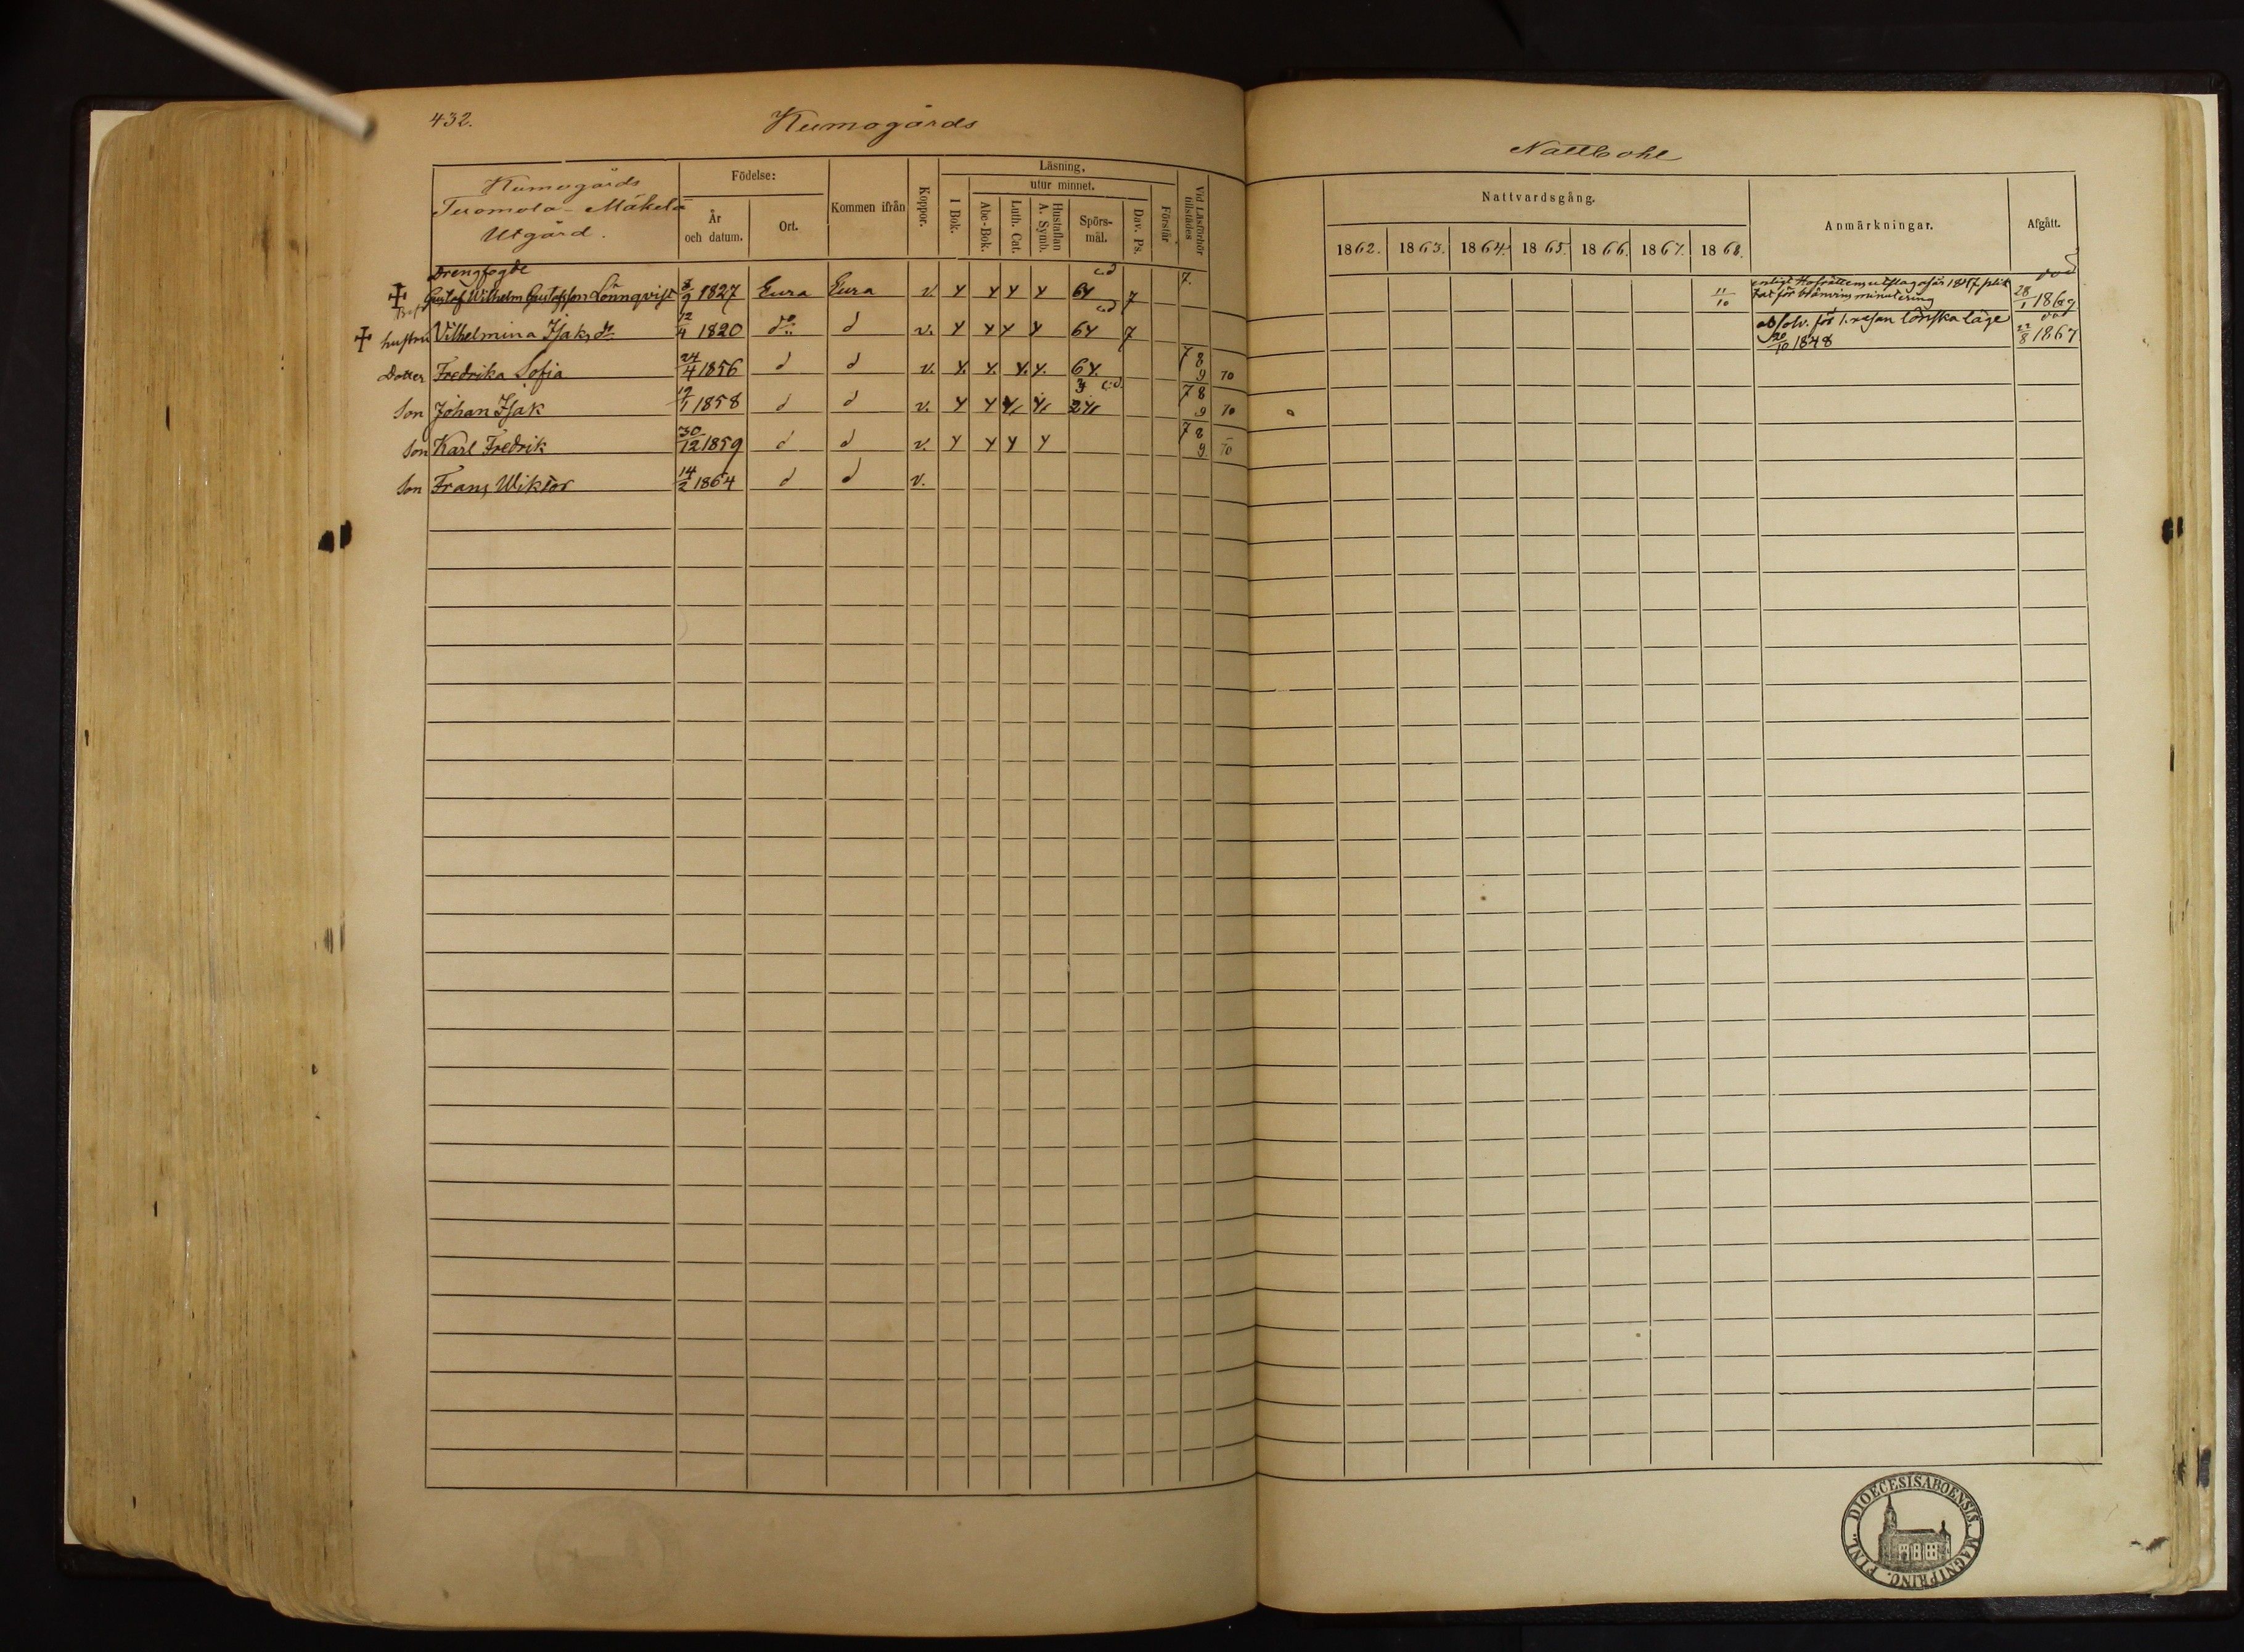 432.
Kumogårds
Nattbohl
Kumogårds
Teromola-Mäkelä
Utgård.
Födelse:
År och datum.
Ort.
Kommen ifrån
Koppor.
Läsning,
utur minnet.
I Bok.
Abc-Bok.
Luth. Cat.
Hustaflan A. Symb.
Spörs-mål.
Dav. Ps.
Förstår
Vid Läsförhör tillstädes
Nattvardsgång.
1862. 1863. 1864. 1865. 1866. 1867. 1868.
Anmärkningar.
Afgått.
Drengfogde
Gustaf Wilhelm Gustafsson Lönnqvist 3/9 1827 Eura Eura v. Y Y Y Y 6Y 7 7. 11/10
död 28/1 1869
hustru Vilhelmina Isaks dr 12/4 1820 do d v. Y Y Y Y 6Y 7
absolv. för 1. resan lönska läge 20/10 1848
död 22/8 1867
Dotter Fredrika Sofia 24/4 1856 d d v. Y. Y. Y. Y. 6Y. 7 8 9 70
Son Johan Isak 1858 d d v. Y Y 7 8 9 70
Son Karl Fredrik 30/12 1859 d d v. Y Y Y Y 7 8 9 70
Son Frans Wiktor 14/2 1864 d d v.
DIOECESIS ABOENSIS. MAGNI PRINC. FINL.